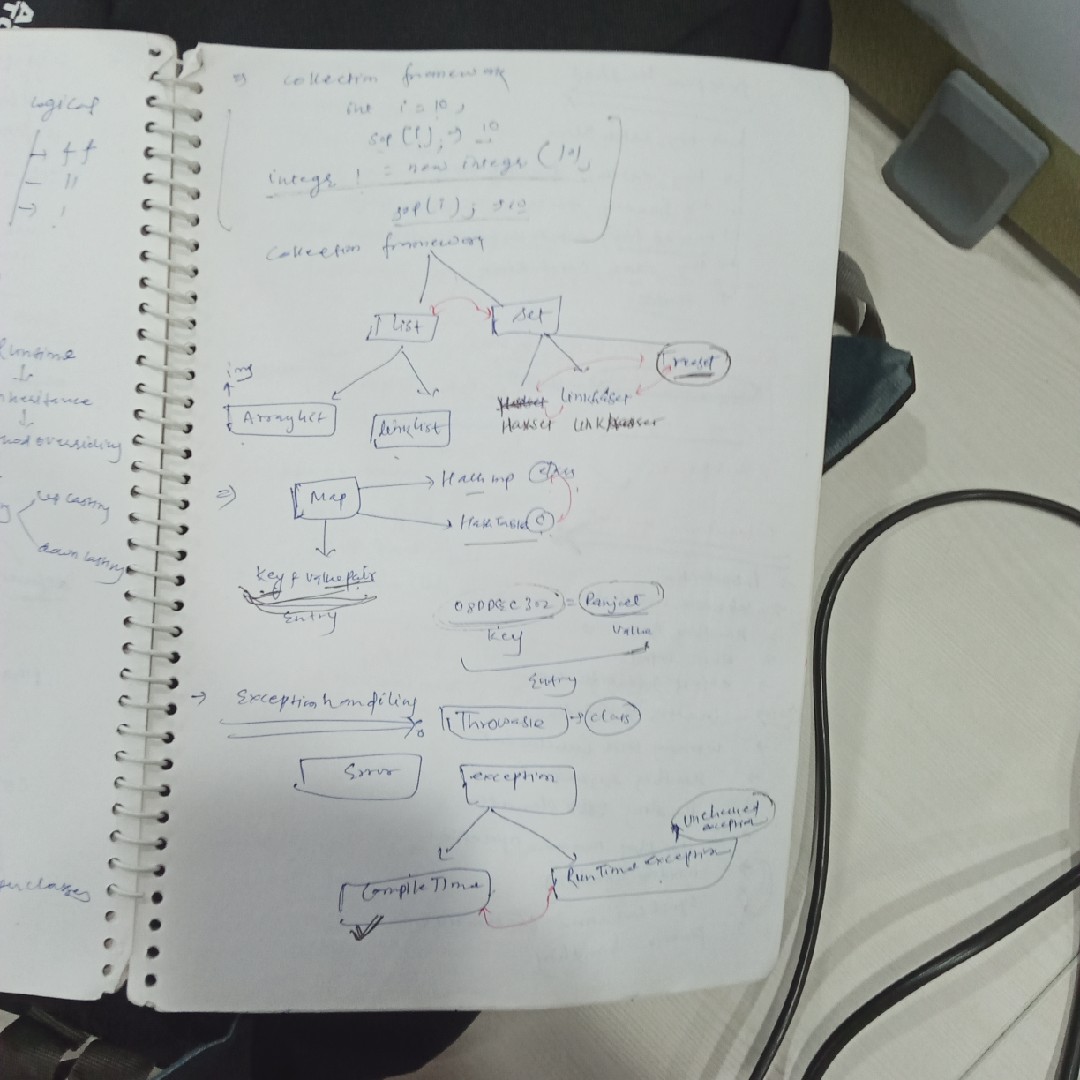 logical
→ ff
– ||
→ !
Runtime
↓
nheritence
↓
hod overriding
up casting
down casting
per classes
⇒ collection framework
int i = 10;
sop(i); → 10
integr i = new integr (10);
sop(i); →10
collection framework
List
Set
Treeset
Arraylist
linklist
Hashset linkhaset
Haxset
⇒ Map
→ Hashmp
→ HashTable
Key & value pair
Entry
= Ranjeet
Key Value
Entry
→ Exception handiling
Throwable → class
Error
exception
unchecked
exception
Compile Time
RunTime exception